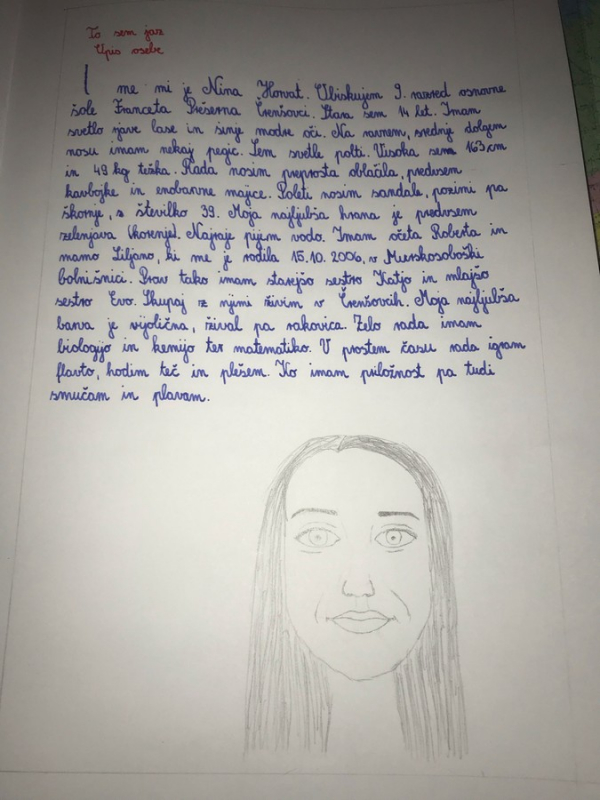 To sem jaz
Opis osebe
Ime mi je Nina Horvat. Obiskujem 9. razred osnovne
šole Franceta Prešerna Črenšovci. Stara sem 14 let. Imam
svetlo rjave lase in sinje modre oči. Na ravnem, srednje dolgem
nosu imam nekaj pegic. Sem svetle polti. Visoka sem 163 cm
in 49 kg težka. Rada nosim preprosta oblačila, predvsem
kavbojke in enobarvne majice. Poleti nosim sandale, pozimi pa
škornje, s številko 39. Moja najljubša hrana je predvsem
zelenjava (korenje). Najraje pijem vodo. Imam očeta Roberta in
mamo Liljano, ki me je rodila 15.10.2006, v Murskosoboški
bolnišnici. Prav tako imam starejšo sestro Katjo in mlajšo
sestro Evo. Skupaj z njimi živim v Črenšovcih. Moja najljubša
barva je vijolična, žival pa rakovica. Zelo rada imam
biologijo in kemijo ter matematiko. V prostem času rada igram
flavto, hodim teč in plešem. Ko imam priložnost pa tudi
smučam in plavam.